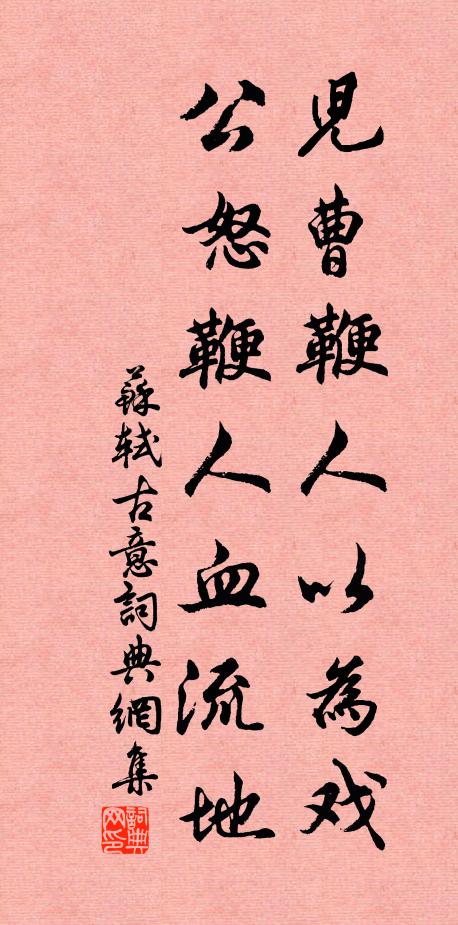 児曹鞭人以為戏
公怒鞭人血流地
蘇軾古意詞典網集
詞典
网印